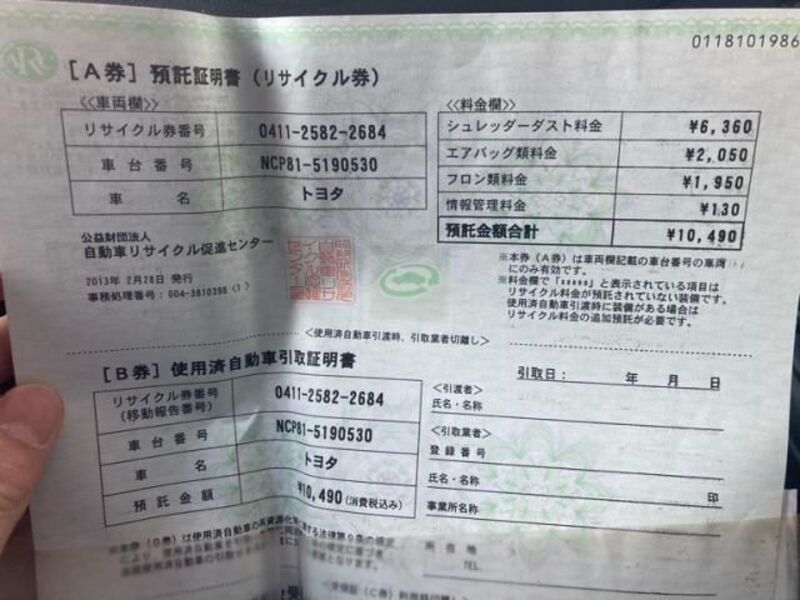 0118101986
[A券] 預託証明書(リサイクル券)
<<車両欄>>
リサイクル券番号 0411-2582-2684
車台番号 NCP81-5190530
車名 トヨタ
<<料金欄>>
シュレッダーダスト料金 ¥6,360
エアバッグ類料金 ¥2,050
フロン類料金 ¥1,950
情報管理料金 ¥130
預託金額合計 ¥10,490
公益財団法人
自動車リサイクル促進センター
2013年 2月26日 発行
事務処理番号:004-3810398 (1)
※本券(A券)は車両欄記載の車台番号の車両
にのみ有効です。
※料金欄で「*****」と表示されている項目は
リサイクル料金が預託されていない装備です。
使用済自動車引渡時に装備がある場合は
リサイクル料金の追加預託が必要です。
<使用済自動車引渡時、引取業者切離し>
[B券] 使用済自動車引取証明書
リサイクル券番号
(移動報告番号) 0411-2582-2684
車台番号 NCP81-5190530
車名 トヨタ
預託金額 ¥10,490(消費税込み)
引取日: 年 月 日
<引渡者>
氏名・名称
<引取業者>
登録番号
氏名・名称 印
事業所名称
所在地
TEL
※本券(B券)は使用済自動車の再資源化等に関する法律第9条の規定